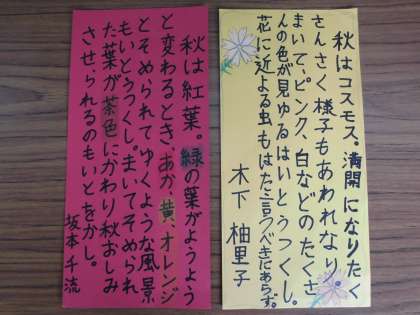 秋はコスモス。満開になりたく
さんさく様子もあわれなり。
まいて、ピンク、白などのたくさ
んの色が見ゆるはいとうつくし。
花に近よる虫もはた言うべきにあらず。
木下 柚里子
秋は紅葉。緑の葉がようよう
と変わるとき、あか、黄、オレンジ
とそめられてゆくような風景
もいとうつくし。まいてそめられ
た葉が茶色にかわり秋おしみ
させ、られるのもいとをかし。
坂本 千流